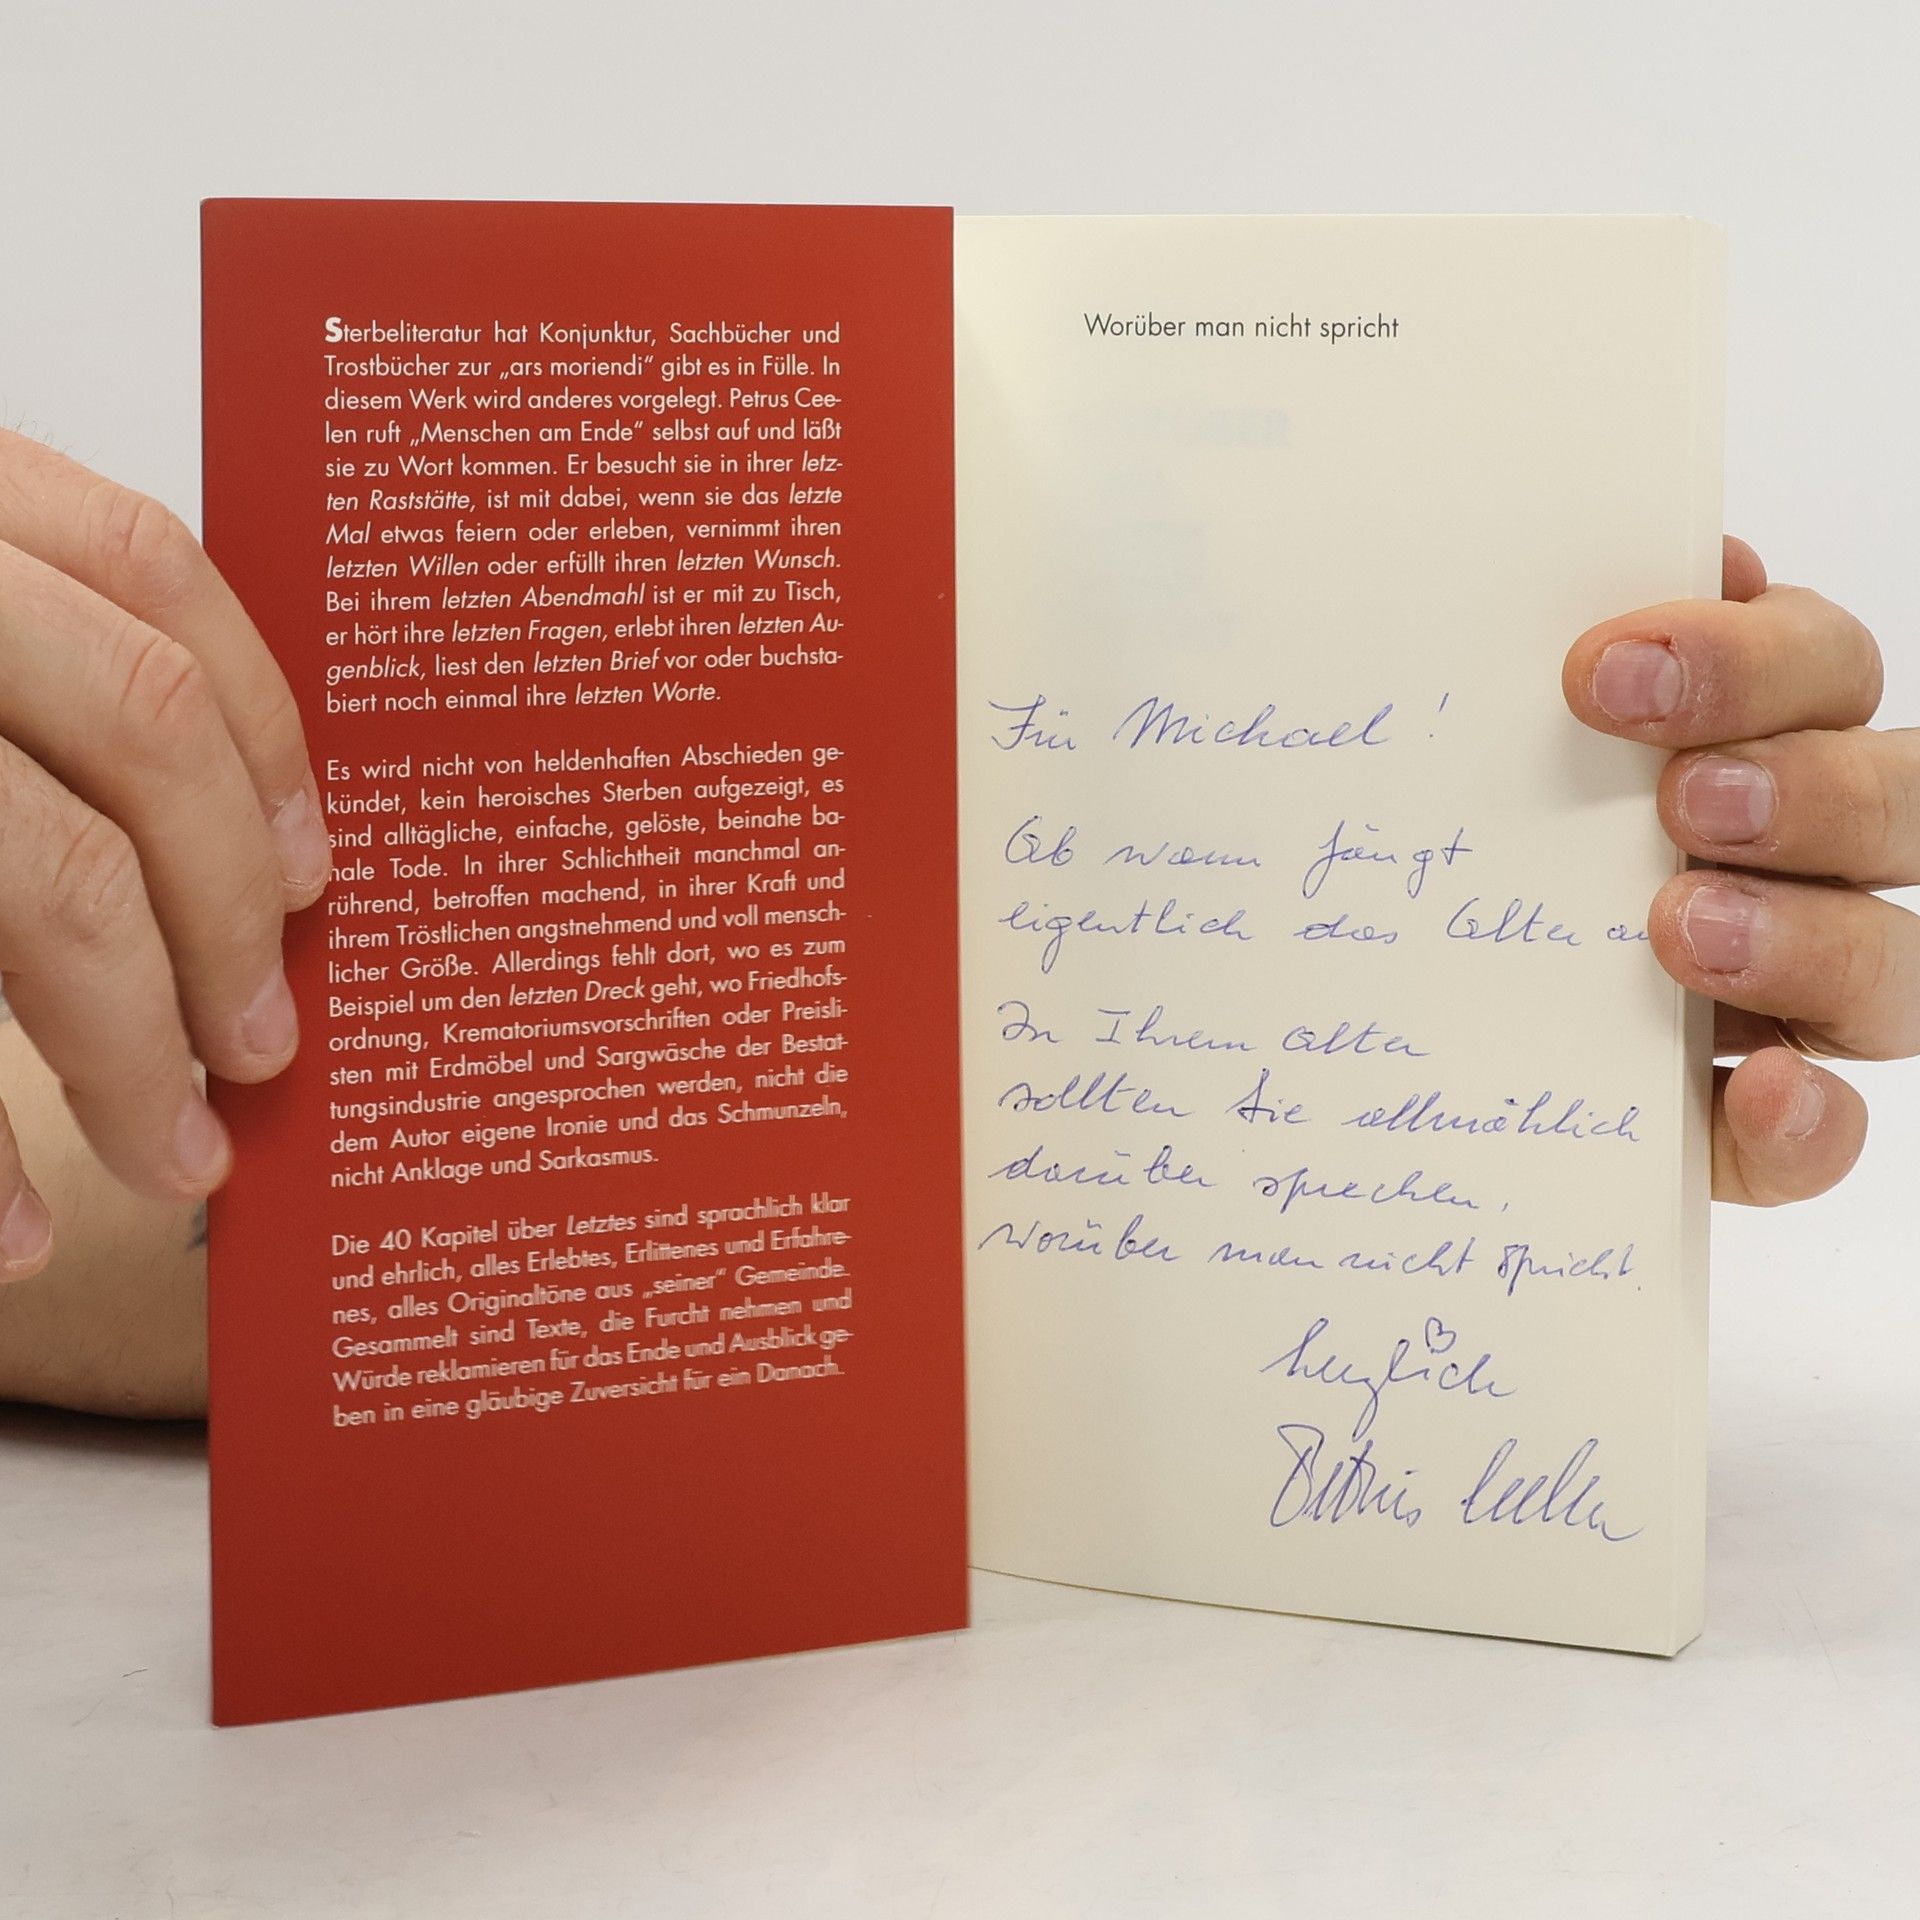 Sterbeliteratur hat Konjunktur, Sachbücher und
Trostbücher zur „ars moriendi“ gibt es in Fülle. In
diesem Werk wird anderes vorgelegt. Petrus Cee-
len ruft „Menschen am Ende“ selbst auf und läßt
sie zu Wort kommen. Er besucht sie in ihrer letz-
ten Raststätte, ist mit dabei, wenn sie das letzte
Mal etwas feiern oder erleben, vernimmt ihren
letzten Willen oder erfüllt ihren letzten Wunsch.
Bei ihrem letzten Abendmahl ist er mit zu Tisch,
er hört ihre letzten Fragen, erlebt ihren letzten Au-
genblick, liest den letzten Brief vor oder buchsta-
biert noch einmal ihre letzten Worte.
Es wird nicht von heldenhaften Abschieden ge-
kündet, kein heroisches Sterben aufgezeigt, es
sind alltägliche, einfache, gelöste, beinahe ba-
nale Tode. In ihrer Schlichtheit manchmal an-
rührend, betroffen machend, in ihrer Kraft und
ihrem Tröstlichen angstnehmend und voll mensch-
licher Größe. Allerdings fehlt dort, wo es zum
Beispiel um den letzten Dreck geht, wo Friedhofs-
ordnung, Krematoriumsvorschriften oder Preisli-
sten mit Erdmöbel und Sargwäsche der Bestat-
tungsindustrie angesprochen werden, nicht die
dem Autor eigene Ironie und das Schmunzeln,
nicht Anklage und Sarkasmus.
Die 40 Kapitel über Letztes sind sprachlich klar
und ehrlich, alles Erlebtes, Erlittenes und Erfahre-
nes, alles Originaltöne aus „seiner“ Gemeinde.
Gesammelt sind Texte, die Furcht nehmen und
Würde reklamieren für das Ende und Ausblick ge-
ben in eine gläubige Zuversicht für ein Danach.
Worüber man nicht spricht
Für Michael!
Ab wann fängt
eigentlich das Alter an
In Ihrem Alter
sollten Sie allmählich
darüber sprechen,
worüber man nicht spricht.
herzlich
Petrus Ceelen